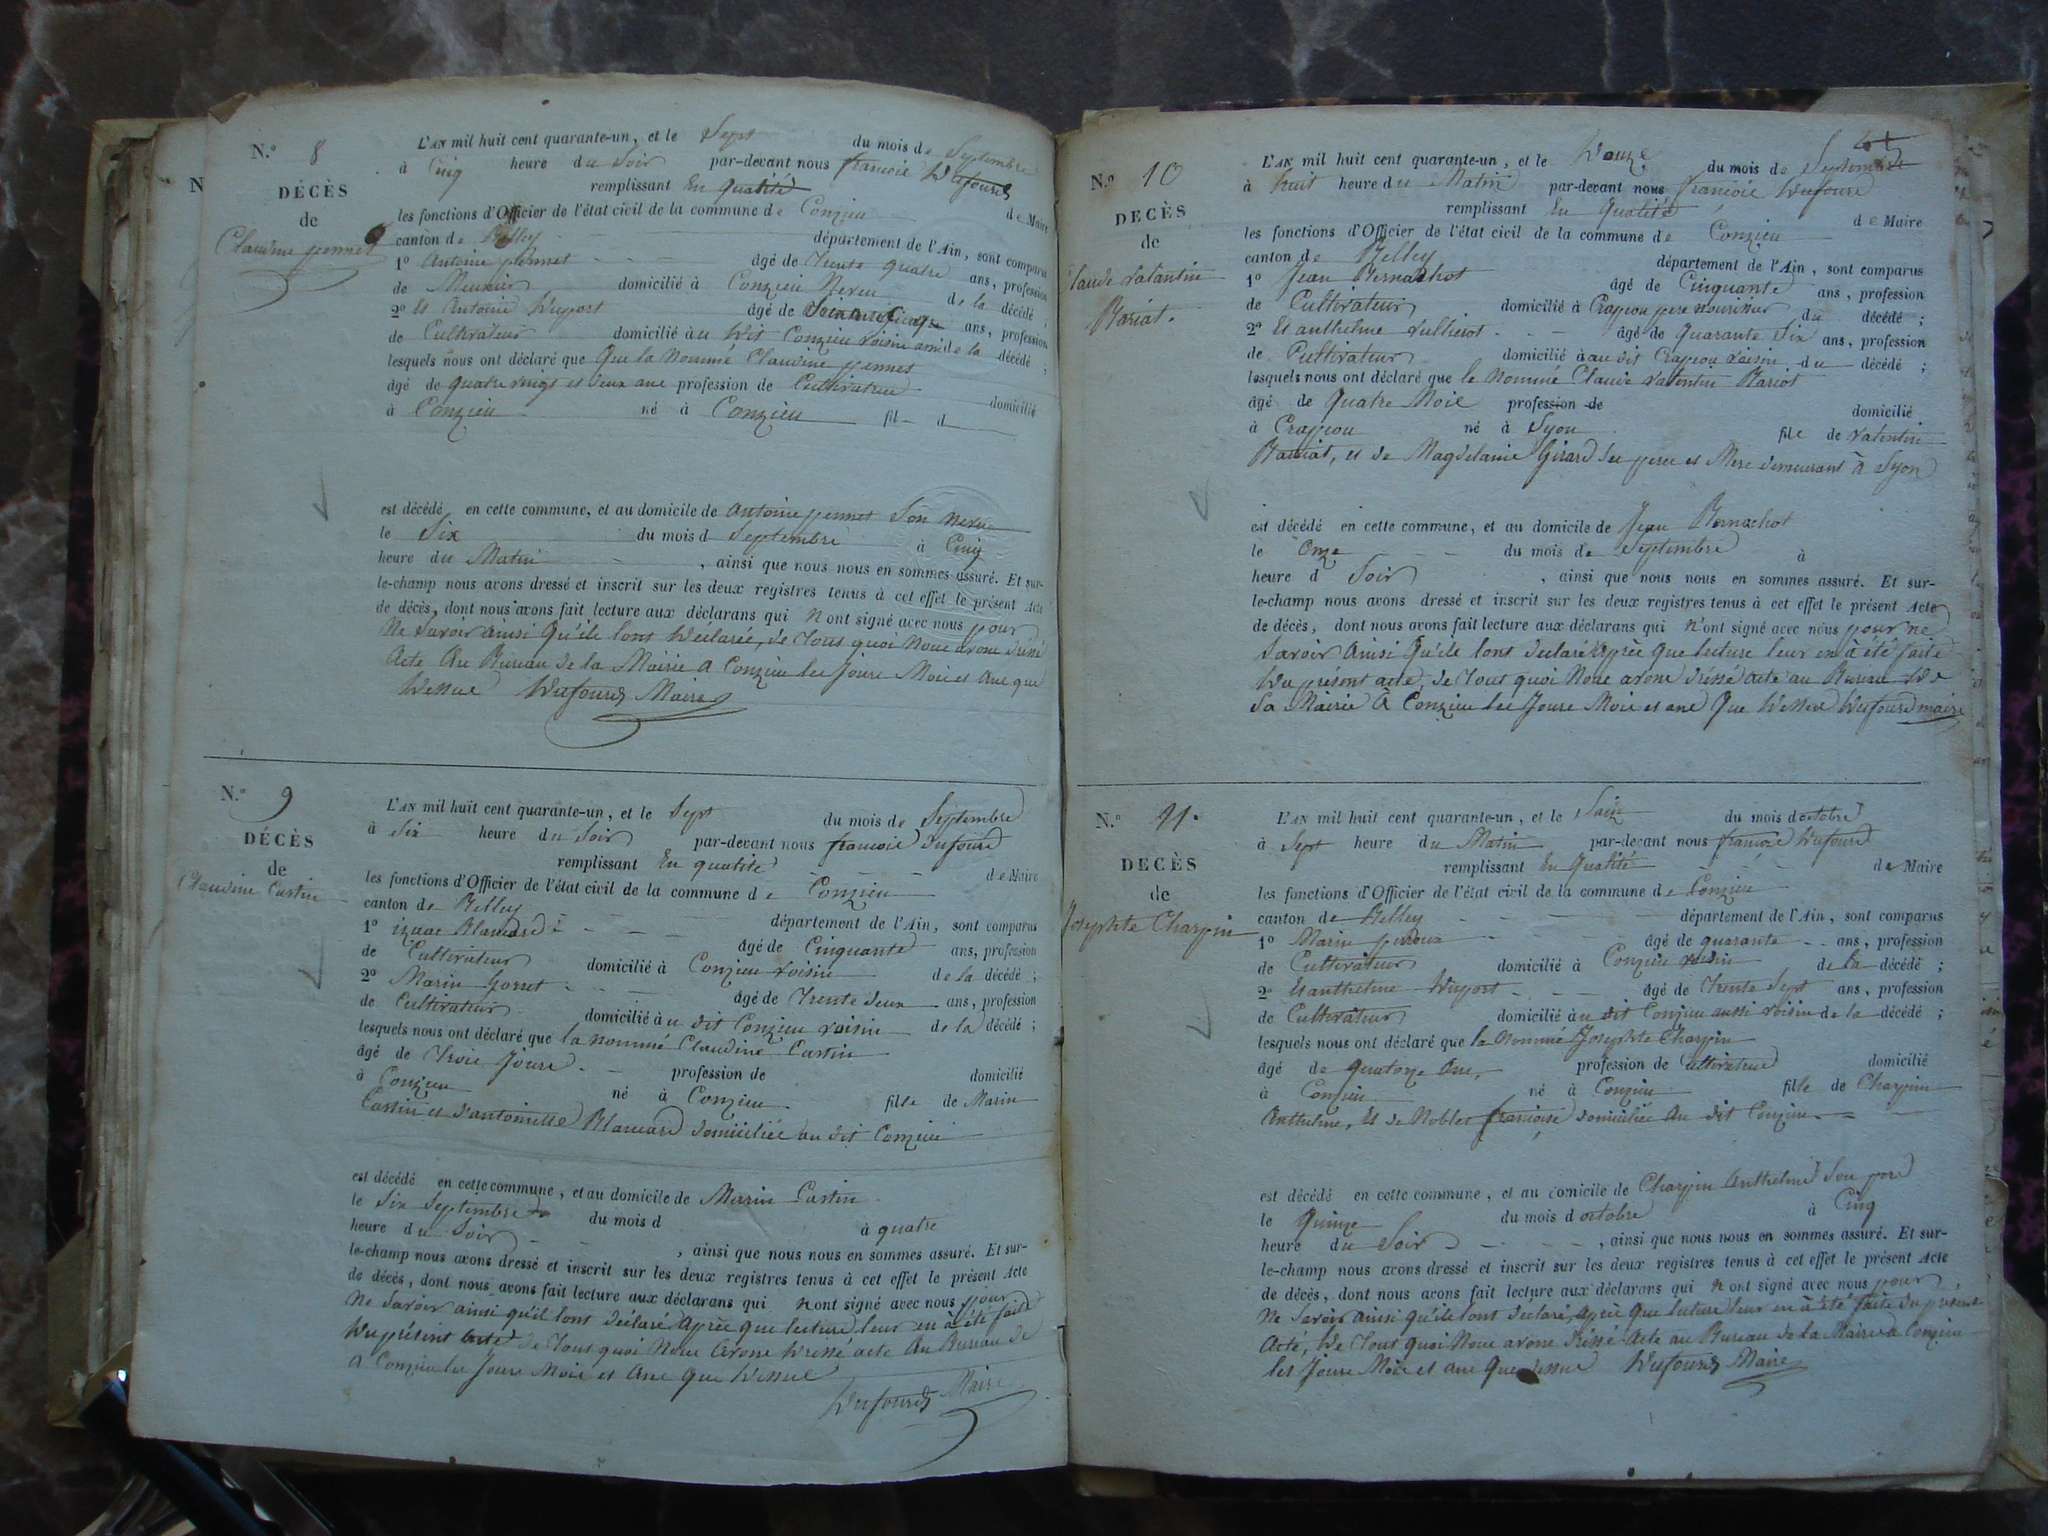 N.° 8
DÉCÈS
de
Claudine pennet
L'AN mil huit cent quarante-un, et le Sept du mois de Septembre
à Cinq heure du Soir par-devant nous francois Dufourd
remplissant En qualité de Maire
les fonctions d'Officier de l'état civil de la commune de Conzieu
canton de Belley département de l'Ain, sont comparus
1° Antoine pennet âgé de Trente quatre ans, profession
de Meunier domicilié à Conzieu Neveu de la décédé ;
2° Et Antoine Duport âgé de ans, profession
de Cultivateur domicilié àu Dit Conzieu voisin de la décédé ;
lesquels nous ont déclaré que Que la Nommé Claudine pennet
âgé de quatre vingt et deux ans profession de Cultivatrice domicilié
à Conzieu né à Conzieu fil d
est décédé en cette commune, et au domicile de Antoine pennet Son Neveu
le Six du mois d Septembre à Cinq
heure du Matin , ainsi que nous nous en sommes assuré. Et sur-
le-champ nous avons dressé et inscrit sur les deux registres tenus à cet effet le présent Acte
de décès, dont nous avons fait lecture aux déclarans qui n'ont signé avec nous pour
Ne Savoir ainsi Qu'ils lont Déclarée, de Tout quoi Nous avons dréssé
Acte Au Bureau de la Mairie a Conzieu les Jours Mois et ans que
Dessus Dufourd Maire
N.° 9
DÉCÈS
de
Claudine Castin
L'AN mil huit cent quarante-un, et le Sept du mois de Septembre
à Six heure du Soir par-devant nous francois Dufourd
remplissant En qualité de Maire
les fonctions d'Officier de l'état civil de la commune de Conzieu
canton de Belley département de l'Ain, sont comparus
1° Blanchard âgé de Cinquante ans, profession
de Cultivateur domicilié à Conzieu voisin de la décédé ;
2° Marin Gorret âgé de Trente deux ans, profession
de Cultivateur domicilié àu dit Conzieu voisin de la décédé ;
lesquels nous ont déclaré que la nommé Claudine Castin
âgé de Trois Jours profession de domicilié
à Conzieu né à Conzieu fille de Marin
Castin et d'antoinette domiciliée au dit Conzieu
est décédé en cette commune, et au domicile de Marin Castin
le Six Septembre du mois d à quatre
heure du Soir , ainsi que nous nous en sommes assuré. Et sur-
le-champ nous avons dressé et inscrit sur les deux registres tenus à cet effet le présent Acte
de décès, dont nous avons fait lecture aux déclarans qui n'ont signé avec nous pour
Ne Savoir ainsi qu'il lont déclaré après que lecture leur en à été faite
Du présent acte de Tout quoi Nous Avons Dressé acte Au Bureau de
a Conzieu les Jours Mois et Ans Que Dessus
Dufourd Maire
N.° 10
DÉCÈS
de
Claude valantin
Bariat.
L'AN mil huit cent quarante-un, et le Douze du mois de Septembre
à huit heure du Matin par-devant nous francois Dufourd
remplissant En Qualité de Maire
les fonctions d'Officier de l'état civil de la commune de Conzieu
canton de Belley département de l'Ain, sont comparus
1° Jean Bernachot âgé de Cinquante ans, profession
de Cultivateur domicilié à Crapeou pere Nouricier du décédé ;
2° Et anthelme vullierot âgé de Quarante Six ans, profession
de Cultivateur domicilié à au dit Crapeou voisin du décédé ;
lesquels nous ont déclaré que le Nommé Claude valentin Bariot
âgé de Quatre Mois profession de domicilié
à Crapeou né à Lyon fils de valentin
Barriat, et de Magdelaine Girard ses peres et Mere demeurant à Lyon
est décédé en cette commune, et au domicile de Jean Bernachot
le Onze du mois de Septembre à
heure d Soir , ainsi que nous nous en sommes assuré. Et sur-
le-champ nous avons dressé et inscrit sur les deux registres tenus à cet effet le présent Acte
de décès, dont nous avons fait lecture aux déclarans qui n'ont signé avec nous pour ne
Savoir Ainsi Qu'ils lont declaré après que lecture leur en à été faite
Du présent acte, de Tout quoi Nous avons dréssé acte au Bureau De
La Mairie À Conzieu les Jours Mois et ans Que Dessus Dufourd maire
N.° 11.
DÉCÈS
de
Josephte Charpin
L'AN mil huit cent quarante-un, et le Saize du mois d octobre
à Sept heure du Matin par-devant nous francois Dufourd
remplissant En Qualité de Maire
les fonctions d'Officier de l'état civil de la commune de Conzieu
canton de Belley département de l'Ain, sont comparus
1° Marin âgé de quarante ans, profession
de Cultivateur domicilié à Conzieu voisin de la décédé ;
2° Et anthelme Duport âgé de Trente Sept ans, profession
de Cultivateur domicilié àu dit Conzieu aussi voisin de la décédé ;
lesquels nous ont déclaré que la Nommé Josephte Charpin
âgé de Quatorze Ans, profession de Cultivatrice domicilié
à Conzieu né à Conzieu fille de Charpin
Anthelme, Et de Noblet françoise domiciliée Au dit Conzieu
est décédé en cette commune, et au domicile de Charpin Anthelme Son pere
le Quinze du mois d octobre à Cinq
heure du Soir , ainsi que nous nous en sommes assuré. Et sur-
le-champ nous avons dressé et inscrit sur les deux registres tenus à cet effet le présent Acte
de décès, dont nous avons fait lecture aux déclarans qui n'ont signé avec nous pour
Ne Savoir ainsi qu'ils lont declaré, après Que lecture leur en à été faite du présent
Acté, De Tout Quoi Nous avons dréssé Acte au Bureau de la Mairie à Conzieu
les Jours Mois et ans Que dessus Dufourd Maire